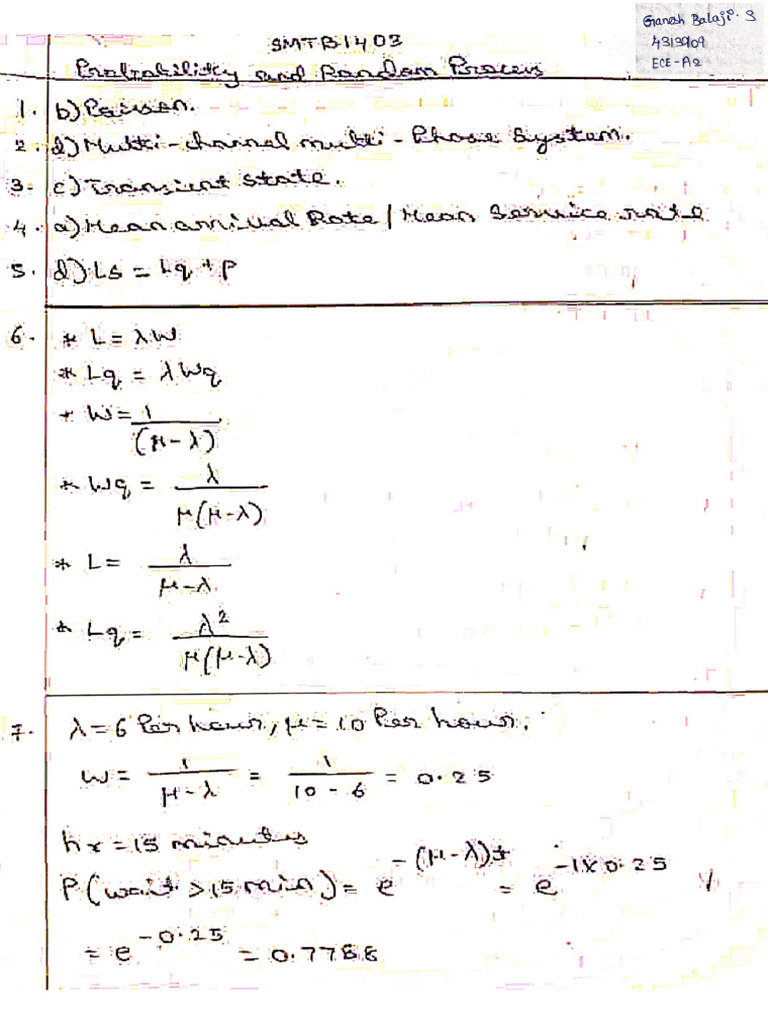 Ganesh Balaji. S
43139109
ECE-A2
SMTB1403
Probability and Random Process
1. b) Poisson.
2. d) Multi-channel multi-Phase System.
3. c) Transient state.
4. a) Mean arrival Rate / Mean Service rate
5. d) Ls = Lq + P
6. * L = λW
* Lq = λWq
* W = 1/(μ-λ)
* Wq = λ/μ(μ-λ)
* L = λ/μ-λ
* Lq = λ²/μ(μ-λ)
7. λ = 6 Per hour, μ = 10 Per hour.
W = 1/μ-λ = 1/10-6 = 0.25
hr = 15 minutes
P(wait > 15 min) = e^-(μ-λ)t = e^-1×0.25
= e^-0.25 = 0.7788